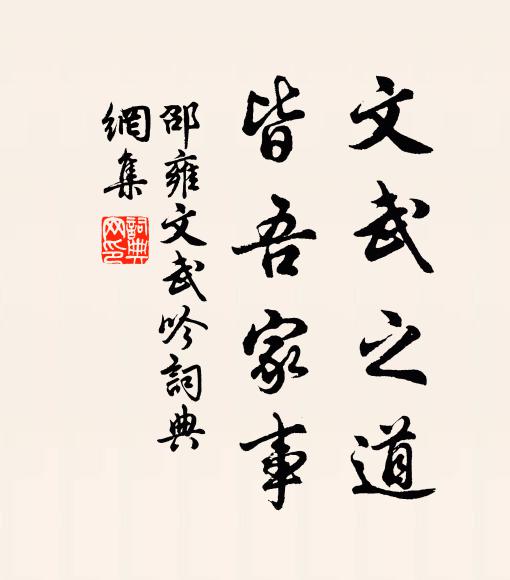 文武之道
皆吾家事
邵雍文武吟詞典
網集
詞典網印